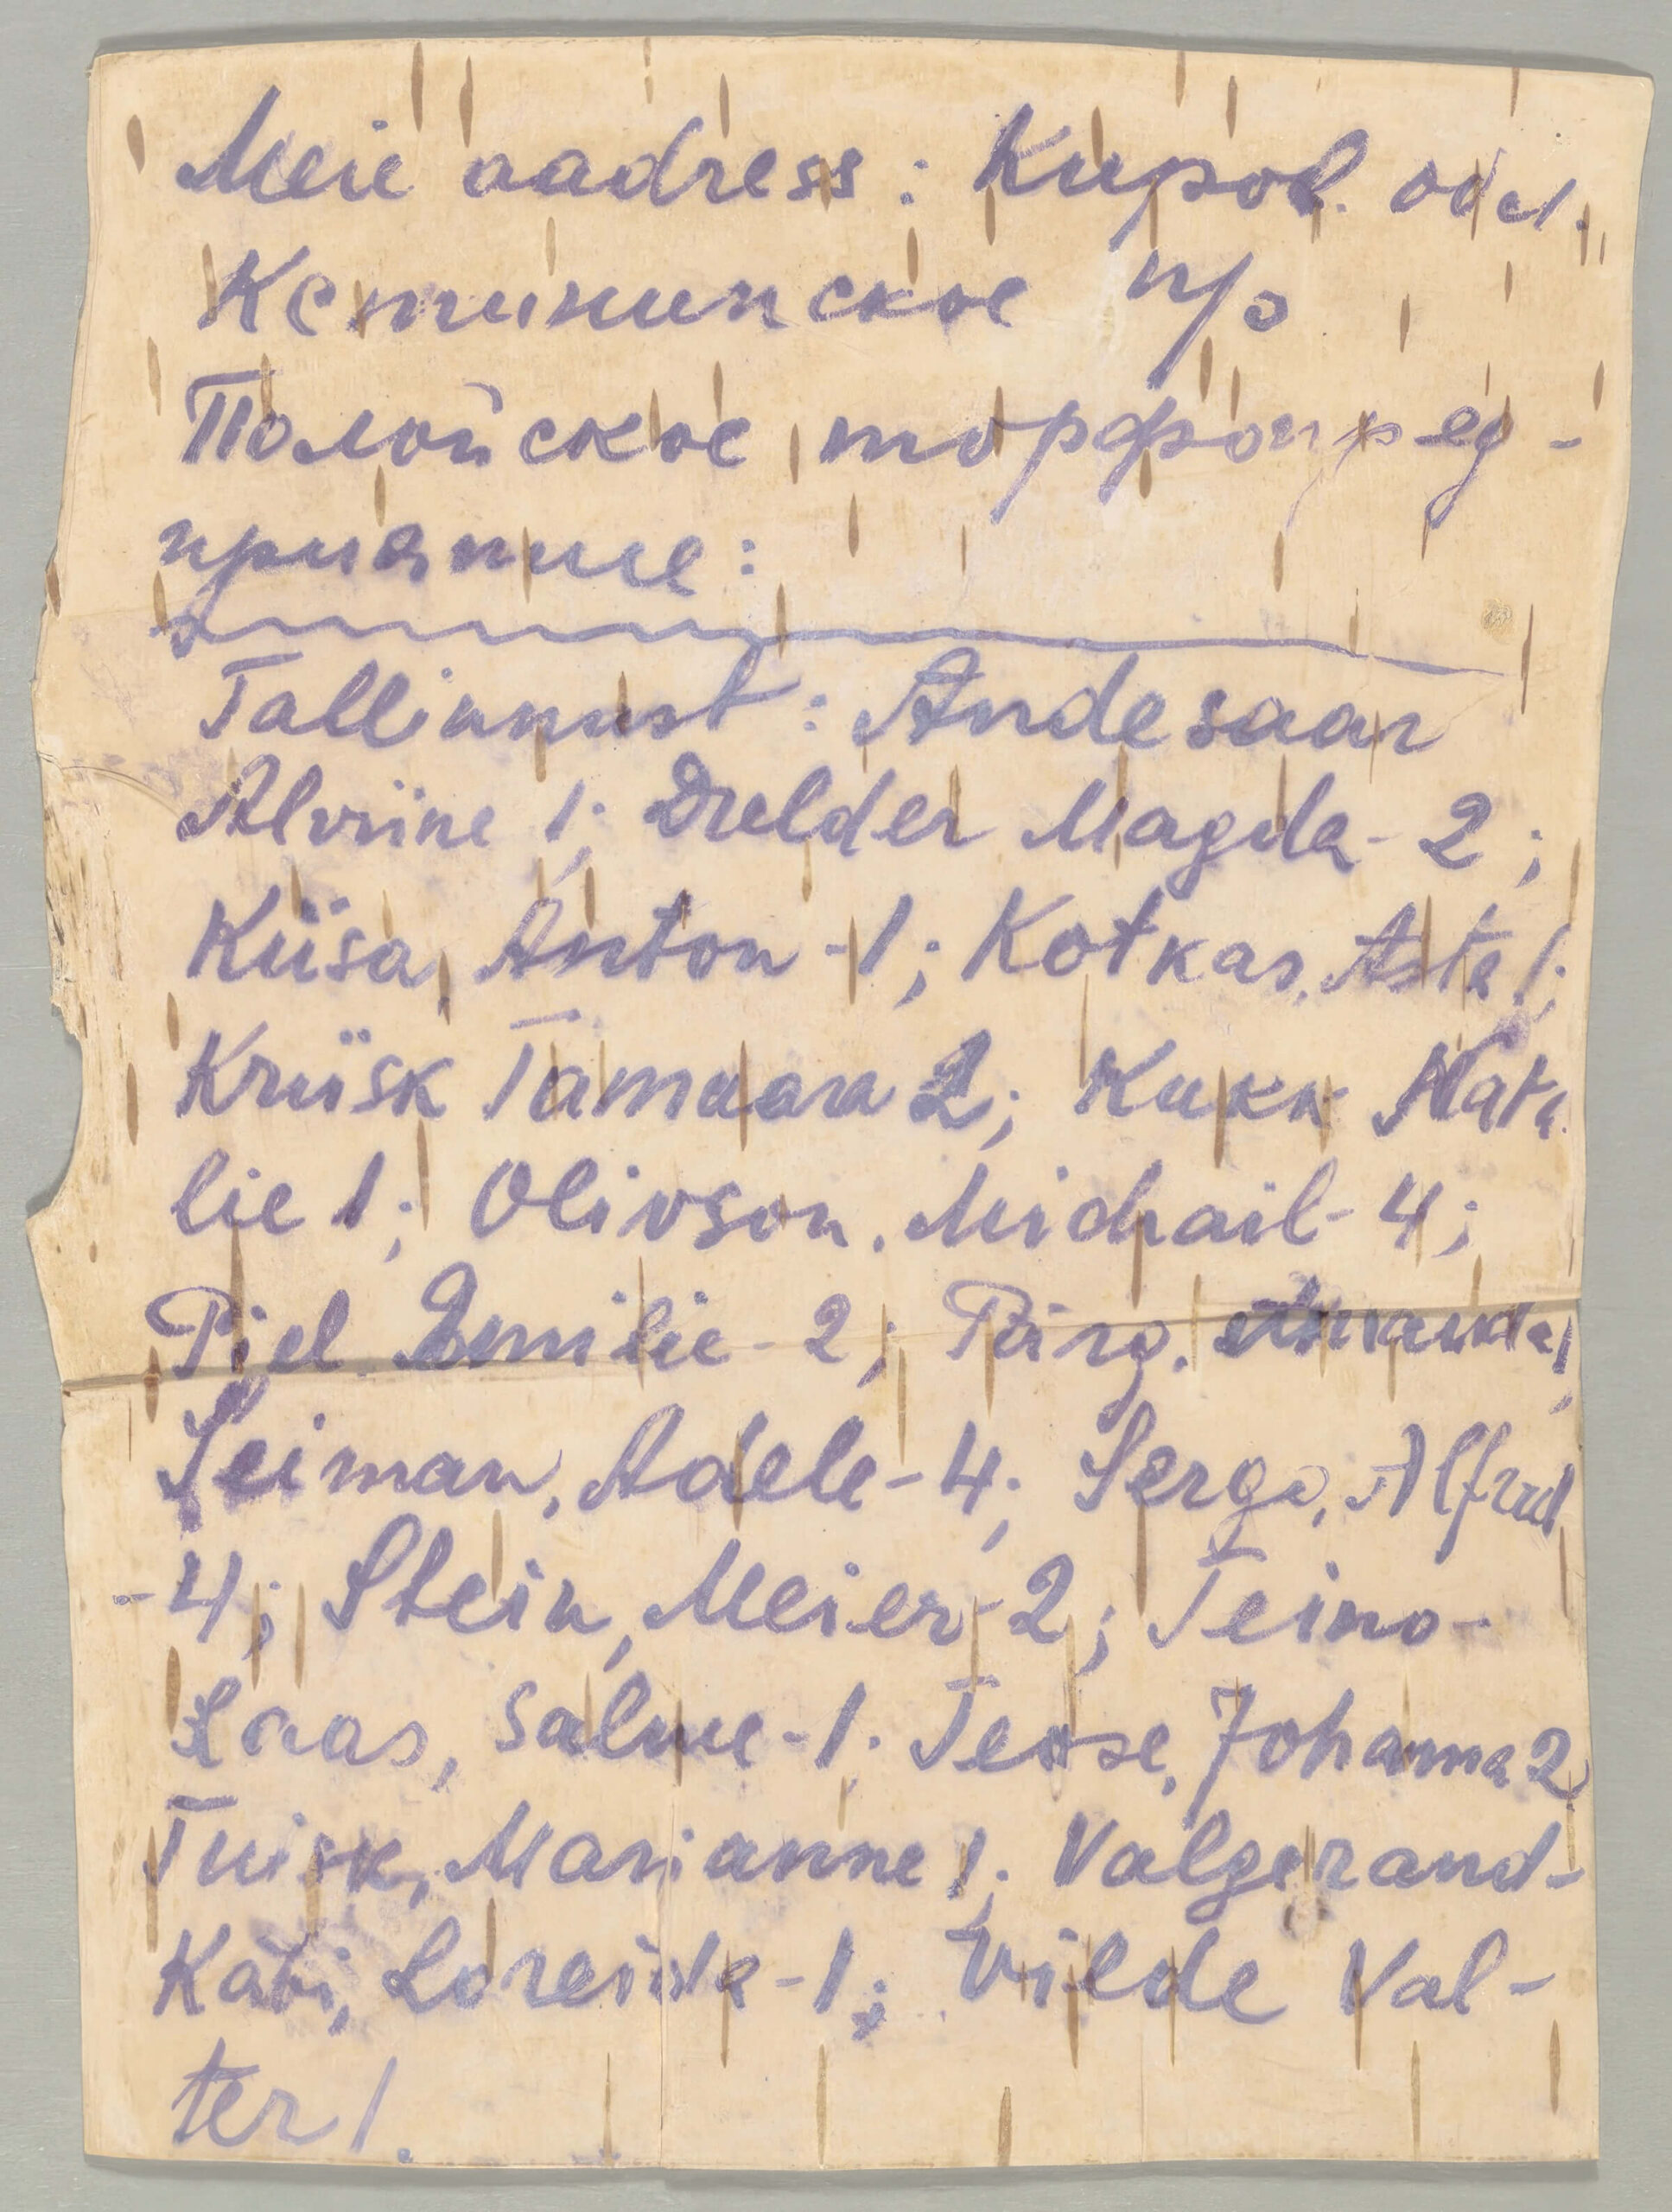 Meie aadress: Киров. обл.
Кстининское п/о
Полойское торфопред-
приятие:
Tallinnust: Andesaar
Alviine 1; Drelder Magda-2;
Kiisa, Anton-1; Kotkas, Asta 1;
Kriisk Tamaara 2; Kukk Nata
lie 1; Olivson, Michail-4;
Piel Emilie-2; Pärg, Amanda 1;
Seiman, Adele-4; Sergo, Alfred
-4; Stein, Meier-2; Teino-
Laas, Salme-1. Teose, Johanna 2
Tuisk, Marianne 1; Valgerand-
Käbi, Loreida-1; Vilde Val-
ter 1.